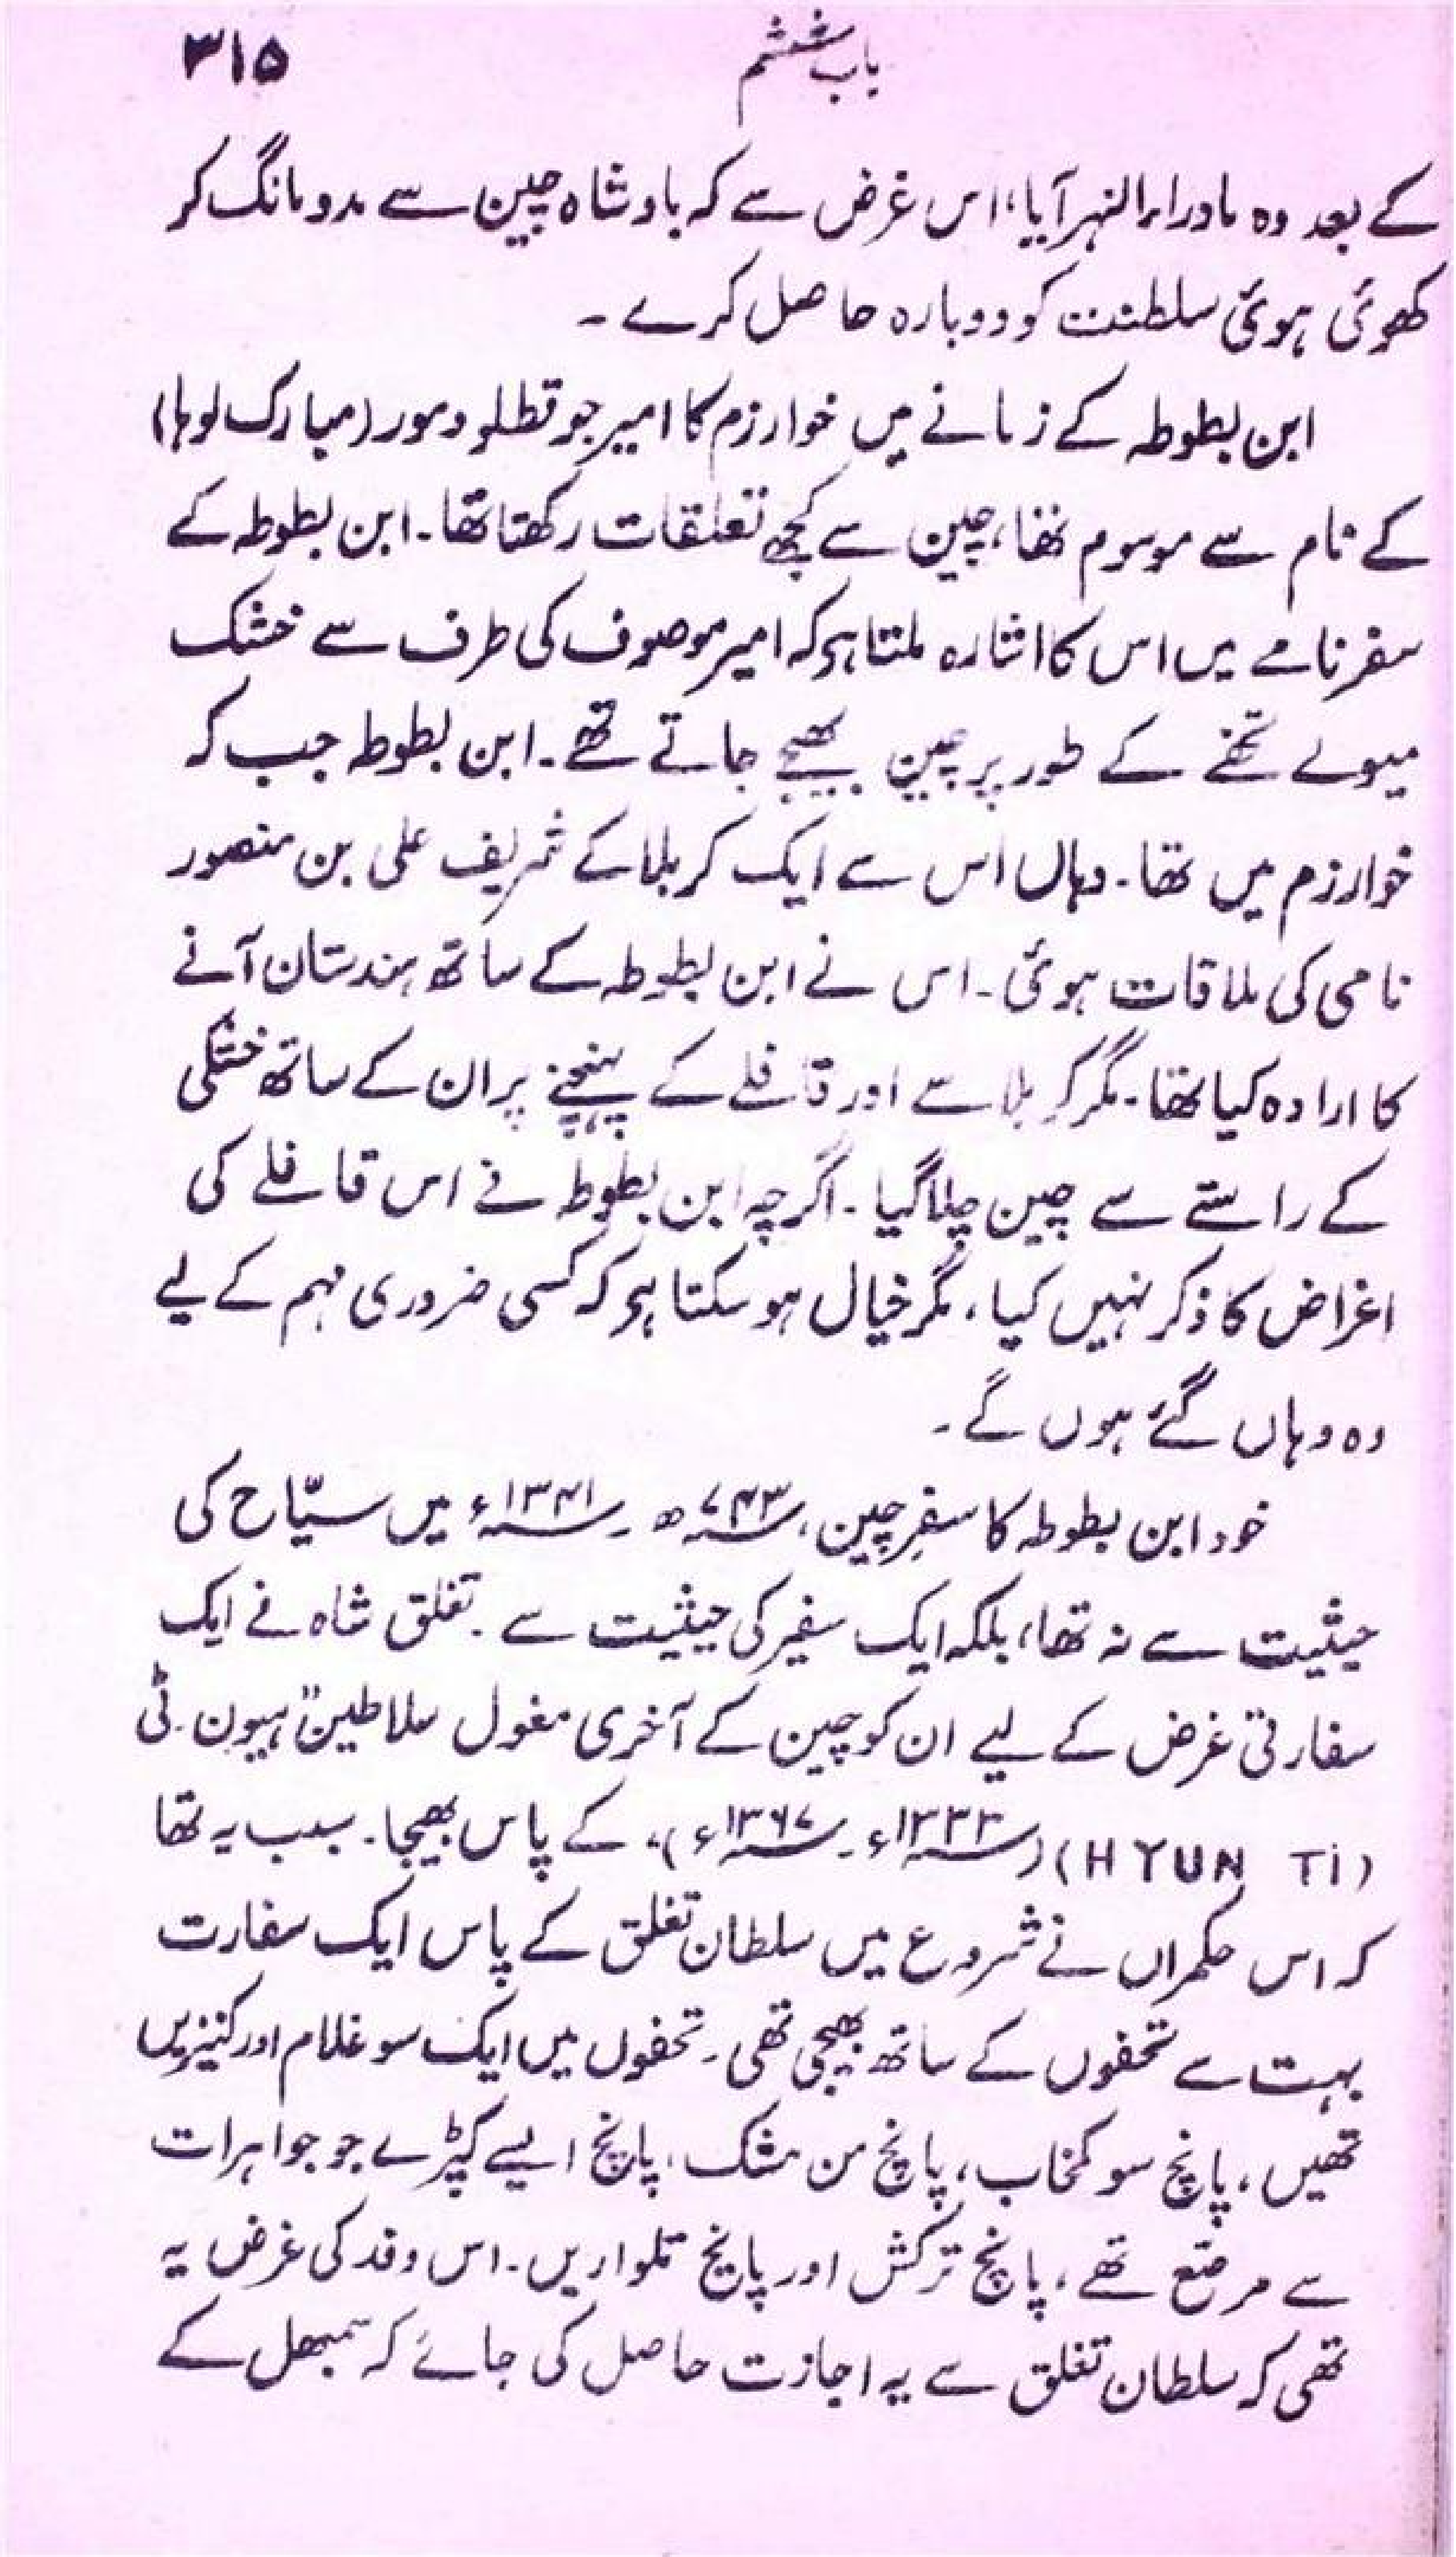 باب ششم ۳۱۵
کے بعد وہ ماوراء النہر آیا، اس غرض سے کہ بادشاہ چین سے مدد مانگ کر
کھوئی ہوئی سلطنت کو دوبارہ حاصل کرے ۔
ابن بطوطہ کے زمانے میں خوارزم کا امیر جو قطلو دمور (مبارک لوہا)
کے نام سے موسوم تھا، چین سے کچھ تعلقات رکھتا تھا۔ ابن بطوطہ کے
سفرنامے میں اس کا اشارہ ملتا ہو کہ امیر موصوف کی طرف سے خشک
میوے تحفے کے طور پر چین بھیجے جاتے تھے۔ ابن بطوطہ جب کہ
خوارزم میں تھا۔ وہاں اس سے ایک کربلا کے شریف علی بن منصور
نامی کی ملاقات ہوئی۔ اس نے ابن بطوطہ کے ساتھ ہندستان آنے
کا ارادہ کیا تھا۔ مگر کربلا سے اور قافلے کے پہنچنے پر ان کے ساتھ خشکی
کے راستے سے چین چلا گیا۔ اگرچہ ابن بطوطہ نے اس قافلے کی
اغراض کا ذکر نہیں کیا، مگر خیال ہو سکتا ہو کہ کسی ضروری مہم کے لیے
وہ وہاں گئے ہوں گے ۔
خود ابن بطوطہ کا سفرِ چین، ۷۴۳ھ ۔ ۱۳۴۱ء میں سیّاح کی
حیثیت سے نہ تھا، بلکہ ایک سفیر کی حیثیت سے ۔ تغلق شاہ نے ایک
سفارتی غرض کے لیے ان کو چین کے آخری مغول سلاطین "ہیون ۔ ٹی
(HYUN Ti) (۱۳۳۳ء ۔ ۱۳۶۷ء)، کے پاس بھیجا۔ سبب یہ تھا
کہ اس حکمراں نے شروع میں سلطان تغلق کے پاس ایک سفارت
بہت سے تحفوں کے ساتھ بھیجی تھی۔ تحفوں میں ایک سو غلام اور کنیزیں
تھیں، پانچ سو کمخاب، پانچ من مشک، پانچ ایسے کپڑے جو جواہرات
سے مرصّع تھے، پانچ ترکش اور پانچ تلواریں۔ اس وفد کی غرض یہ
تھی کہ سلطان تغلق سے یہ اجازت حاصل کی جائے کہ سمبھل کے